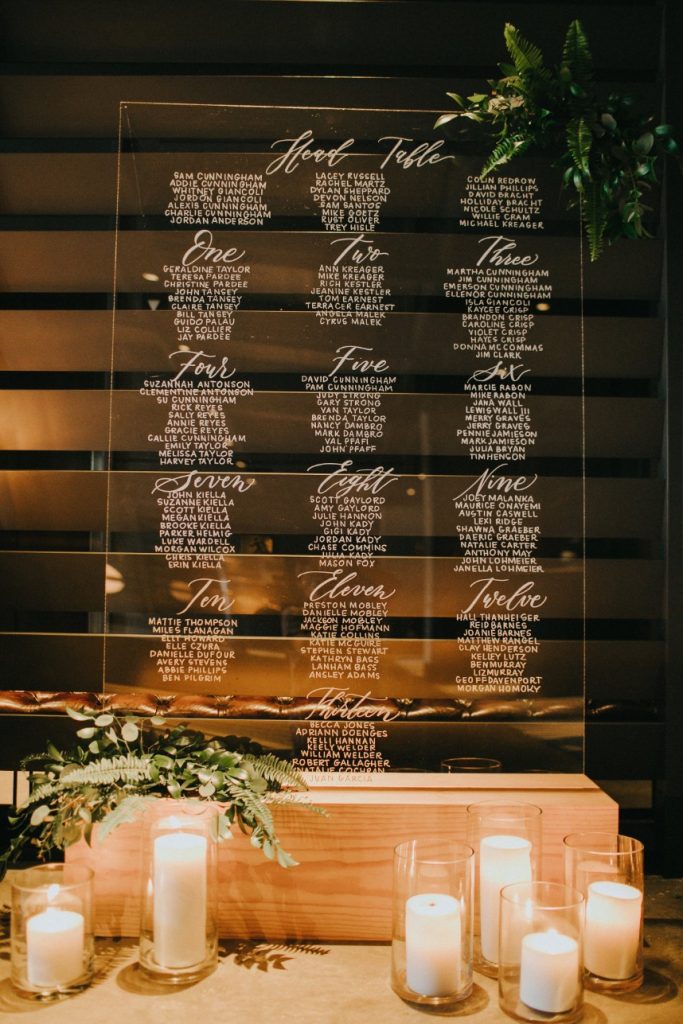 Head Table
SAM CUNNINGHAM
ADDIE CUNNINGHAM
WHITNEY GIANCOLI
JORDON GIANCOLI
ALEXIS CUNNINGHAM
CHARLIE CUNNINGHAM
JORDAN ANDERSON
LACEY RUSSELL
RACHEL MARTZ
DYLAN SHEPPARD
DEVON NELSON
SAM SANTOS
MIKE GOETZ
RUST OLIVER
TREY HISLE
COLIN REDROW
JILLIAN PHILLIPS
DAVID BRACHT
HOLLIDAY BRACHT
NICOLE SCHULTZ
WILLIE CRAM
MICHAEL KREAGER
One
GERALDINE TAYLOR
TERESA PARDEE
CHRISTINE PARDEE
JOHN TANSEY
BRENDA TANSEY
CLAIRE TANSEY
BILL TANSEY
GUIDO PALAU
LIZ COLLIER
JAY PARDEE
Two
ANN KREAGER
MIKE KREAGER
RICH KESTLER
JEANINE KESTLER
TOM EARNEST
TERRACER EARNEST
ANGELA MALEK
CYRUS MALEK
Three
MARTHA CUNNINGHAM
JIM CUNNINGHAM
EMERSON CUNNINGHAM
ELLENOR CUNNINGHAM
ISLA GIANCOLI
KAYCEE CRISP
BRANDON CRISP
CAROLINE CRISP
VIOLET CRISP
HAYES CRISP
DONNA MCCOMMAS
JIM CLARK
Four
SUZANNAH ANTONSON
CLEMENTINE ANTONSON
SU CUNNINGHAM
RICK REYES
SALLY REYES
ANNIE REYES
GRACIE REYES
CALLIE CUNNINGHAM
EMILY TAYLOR
MELISSA TAYLOR
HARVEY TAYLOR
Five
DAVID CUNNINGHAM
PAM CUNNINGHAM
JUDY STRONG
GARY STRONG
VAN TAYLOR
BRENDA TAYLOR
NANCY DAMBRO
MARK DAMBRO
VAL PFAFF
JOHN PFAFF
Six
MARCIE RABON
MIKE RABON
JANA WALL
LEWIS WALL III
MERRY GRAVES
JERRY GRAVES
PENNIE JAMIESON
MARK JAMIESON
JULIA BRYAN
TIM HENSON
Seven
JOHN KIELLA
SUZANNE KIELLA
SCOTT KIELLA
MEGAN KIELLA
BROOKE KIELLA
PARKER HELMIG
LUKE WARDELL
MORGAN WILCOX
CHRIS KIELLA
ERIN KIELLA
Eight
SCOTT GAYLORD
AMY GAYLORD
JULIE HANNON
JOHN KADY
GIGI KADY
JORDAN KADY
CHASE COMMINS
JULIA KADY
MASON FOX
Nine
JOEY MALANKA
MAURICE ONAYEMI
AUSTIN CASWELL
LEXI RIDGE
SHAWNA GRAEBER
DAERIC GRAEBER
NATALIE CARTER
ANTHONY MAY
JOHN LOHMEIER
JANELLA LOHMEIER
Ten
MATTIE THOMPSON
MILES FLANAGAN
ELLY HOWARD
ELLE CZURA
DANIELLE DUFOUR
AVERY STEVENS
ABBIE PHILLIPS
BEN PILGRIM
Eleven
PRESTON MOBLEY
DANIELLE MOBLEY
JACKSON MOBLEY
MAGGIE HOFMANN
KATIE COLLINS
KATIE MCGUIRE
STEPHEN STEWART
KATHRYN BASS
LANHAM BASS
ANSLEY ADAMS
Twelve
HALL THANHEISER
REID BARNES
JOANIE BARNES
MATTHEW RANGEL
CLAY HENDERSON
KELLEY LUTZ
BEN MURRAY
LIZ MURRAY
GEOFF DAVENPORT
MORGAN HOMOKY
Thirteen
BECCA JONES
ADRIANN DOENGES
KELLI HANNAN
KEELY WELDER
WILLIAM WELDER
ROBERT GALLAGHER
NATALIE COCHRAN
JUAN GARCIA